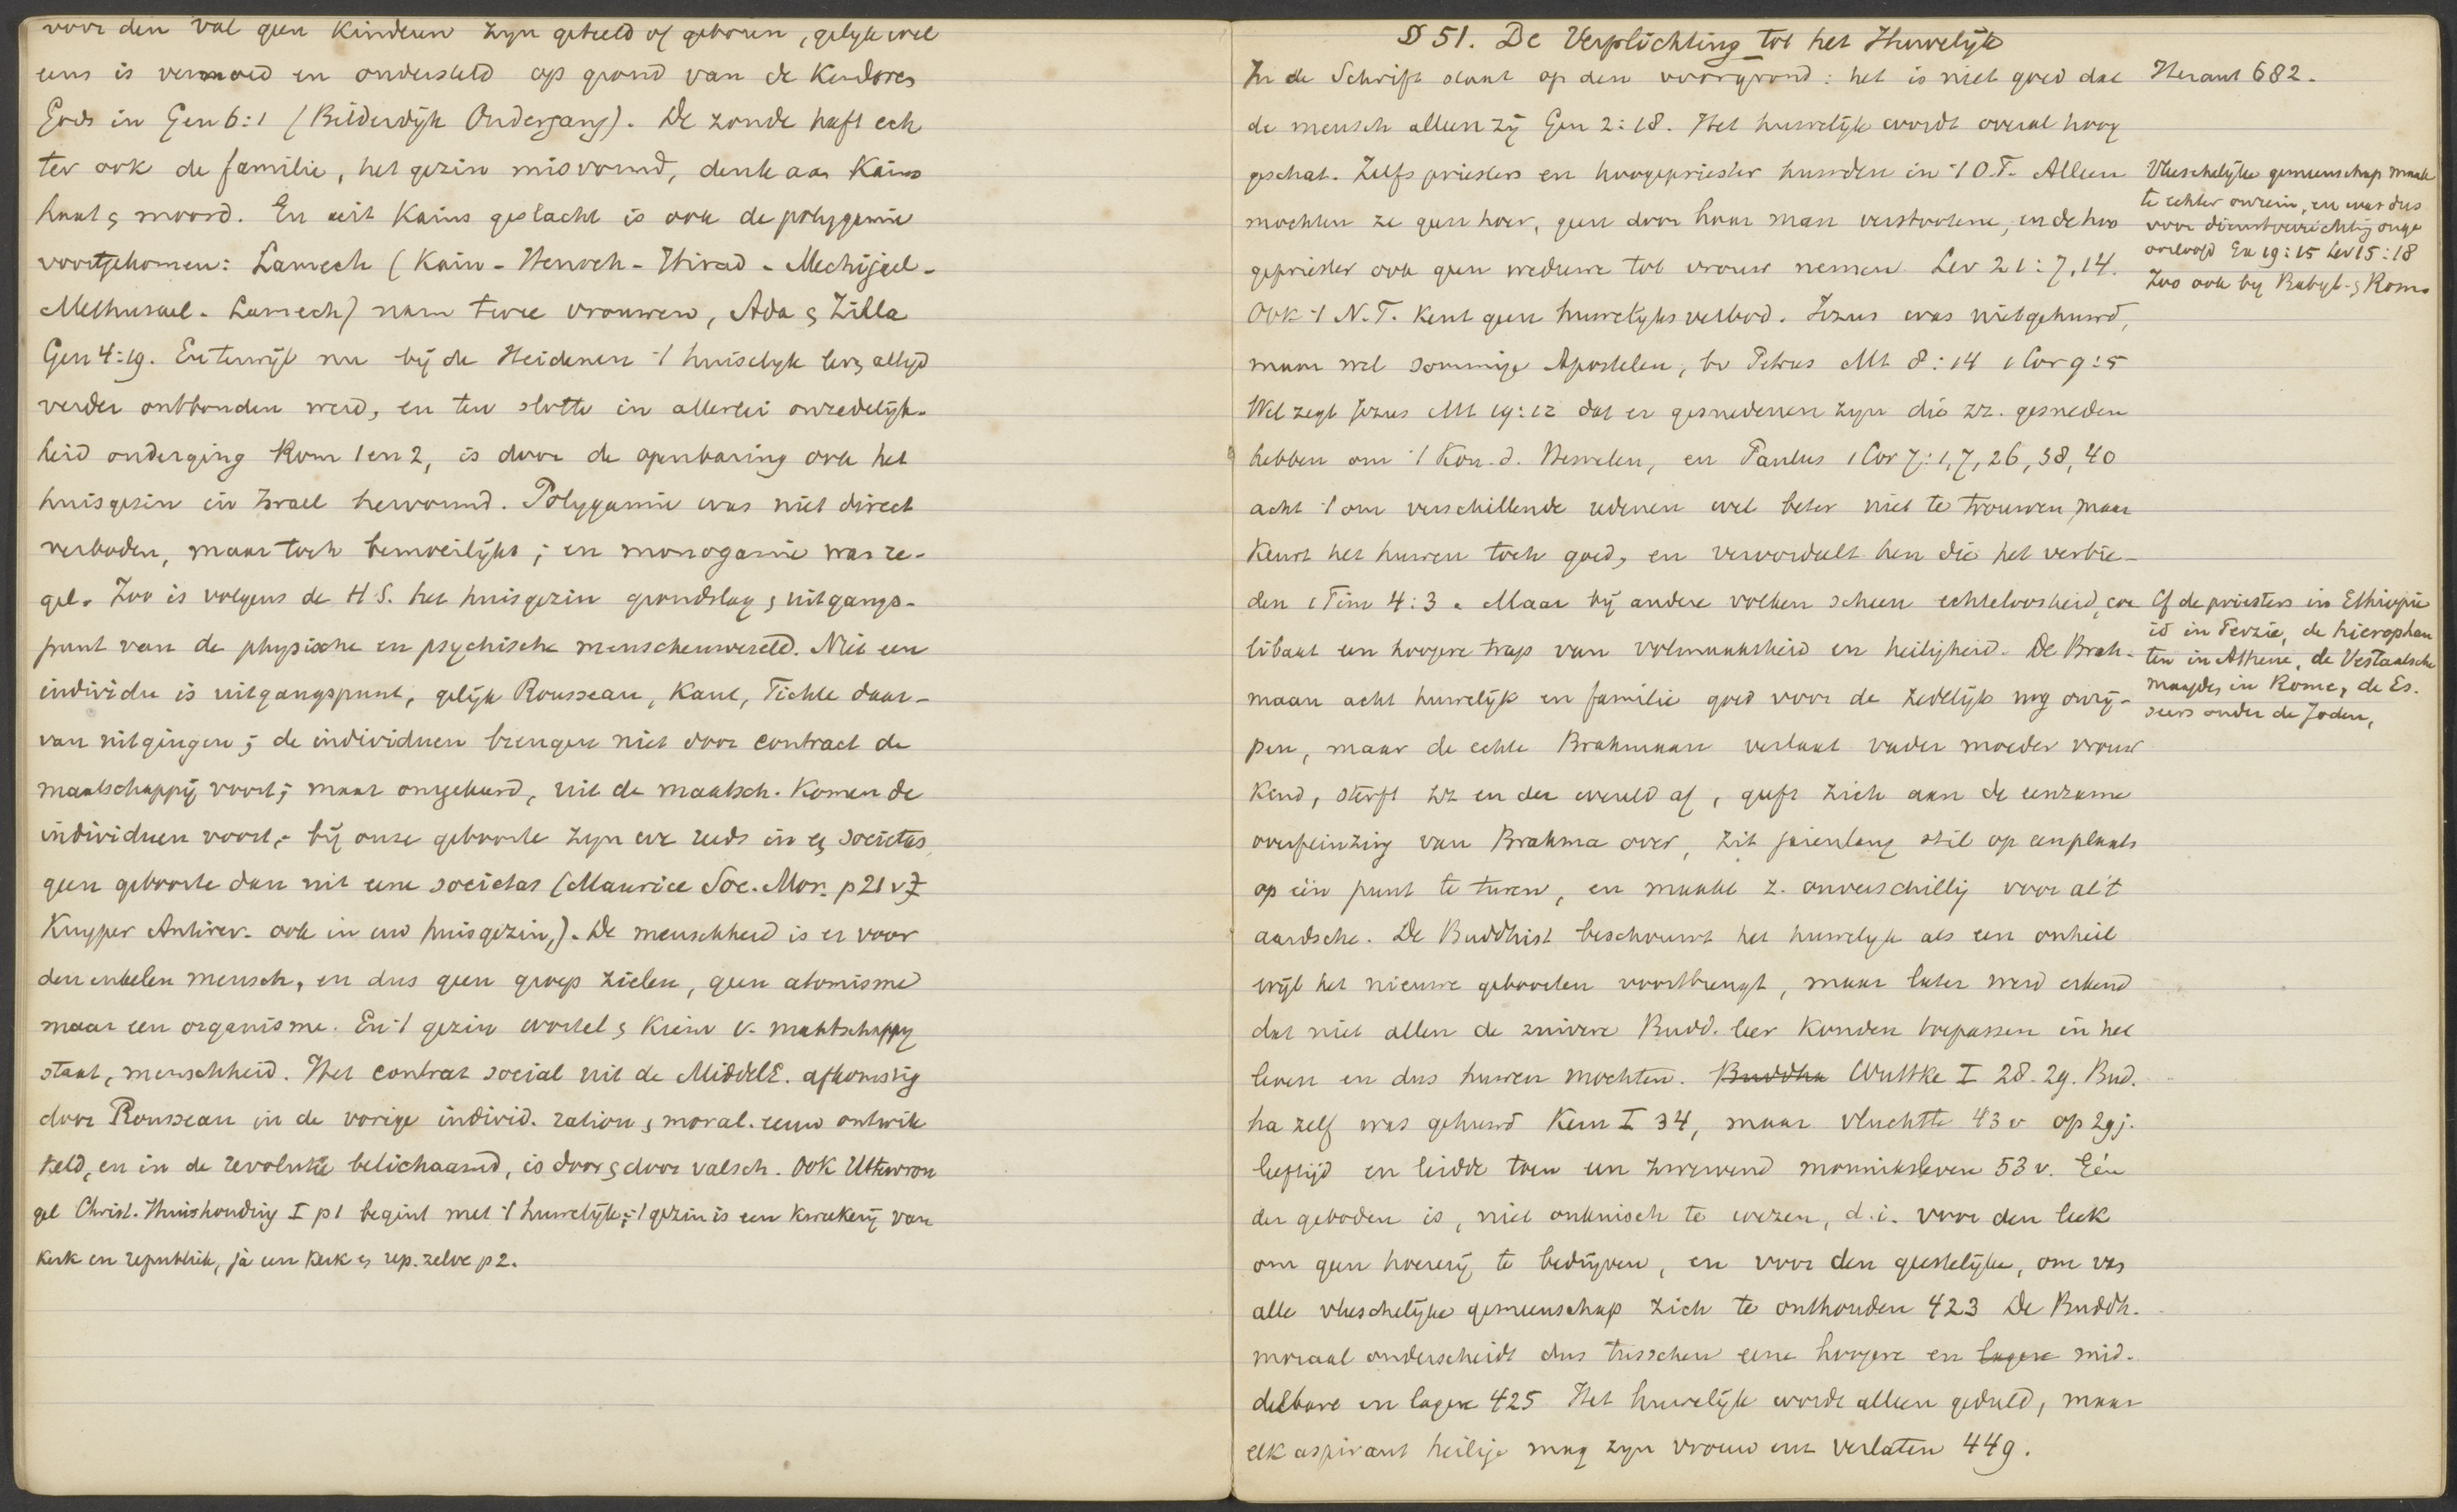 voor den val geen Kinderen zyn geteeld of geboren, gelyk wel
eens is vermoed en ondersteld op grond van de Kinderen
Gods in Gen 6:1 (Bilderdijk Ondergang). De zonde heeft ech
ter ook de familie, het gezin misvormd, denk aan Kains
haat & moord. En uit Kains geslacht is ook de polygamie
voortgekomen: Lamech (Kain - Henoch - Hirad - Mechijael -
Methusael - Lamech) nam twee vrouwen, Ada & Zilla
Gen 4:19. En terwijl nu bij de Heidenen 't huiselyk leven altyd
verder ontbonden werd, en ten slotte in allerlei onzedelijk-
heid onderging Rom 1 en 2, is door de openbaring ook het
huisgezin in Israel hervormd. Polygamie was niet direct
verboden, maar toch bemoeilijkt; en monogamie was re-
gel. Zoo is volgens de H S. het huisgezin grondslag & uitgangs-
punt van de physische en psychische menschenwereld. Niet een
individu is uitgangspunt, gelijk Rousseau, Kant, Fichte daar-
van uitgingen; de individuen brengen niet door contract de
maatschappij voort; maar omgekeerd, uit de maatsch. Komen de
individuen voort; bij onze geboorte zyn we reeds in een societas,
geen geboorte dan uit eene societas (Maurice Soc. Mor. p 21 v
Kuyper Antirev. ook in uw huisgezin,). De menschheid is er voor
den enkelen mensch, en dus geen groep zielen, geen atomisme
maar een organisme. En 't gezin wortel & Kiem v. maatschappy
staat, menschheid. Het contrat social uit de MiddelE. afkomstig
door Rousseau in de vorige individ. ration & moral. eeuw ontwik
keld, en in de revolutie belichaamd, is door & door valsch. Ook Uttewron
gel Christ. Huishouding I p 1 begint met 't huwelijk; 't gezin is een kweekerij van
Kerk en republiek, ja een Kerk en rep. zelve p 2.
§ 51. De Verplichting tot het Huwelijk
In de Schrift staat op den voorgrond: het is niet goed dat
de mensch alleen zij Gen 2:18. Het huwelijk wordt overal hoog
geschat. Zelfs priesters en hoogepriester huwden in 't O.T. Alleen
mochten ze geen hoer, geen door haar man verstootene, en de hoo
gepriester ook geen weduwe tot vrouw nemen Lev 21:7,14.
Ook 't N.T. Kent geen huwelyksverbod. Jezus was niet gehuwd,
maar wel sommige Apostelen, bv Petrus Mt 8:14 1 Cor 9:5
Wel zegt Jezus Mt 19:12 dat er gesnedenen zyn die zz. gesneden
hebben om 't Kon. d. Hemelen, en Paulus 1 Cor 7:1,7,26,38,40
acht 't om verschillende redenen wel beter niet te trouwen maar
Keurt het huwen toch goed, en veroordeelt hen die het verbie-
den 1 Tim 4:3. Maar bij andere volken scheen echteloosheid, coe
libaat een hoogere trap van volmaaktheid en heiligheid. De Brah-
maan acht huwelijk en familie goed voor de zedelijk nog onrij-
pen, maar de echte Brahmaan verlaat vader moeder vrouw
Kind, sterft zz en der wereld af, geeft zich aan de eenzame
overpeinzing van Brahma over, zit jarenlang stil op een plaats
op één punt te turen, en maakt z. onverschillig voor al 't
aardsche. De Buddhist beschouwt het huwelyk als een onheil
wijl het nieuwe geboorten voortbrengt, maar later werd erkend
dat niet allen de zuivere Budd. leer Konden toepassen in het
leven en dus huwen mochten. Buddha Wuttke I 28. 29. Bud.
ha zelf was gehuwd Kern I 34, maar vluchtte 43 v op 29 j.
leeftijd en leidde toen een zwervend monniksleven 53 v. Eén
der geboden is, niet onkuisch te wezen, d.i. voor den leek
om geen hoererij te bedrijven, en voor den geestelijke, om van
alle vleeschelijke gemeenschap zich te onthouden 423 De Buddh.
moraal onderscheidt dus tusschen eene hoogere en lagere mid-
delbare en lagere 425 Het huwelijk wordt alleen geduld, maar
elk aspirant heilige mag zyn vrouw enz verlaten 449.
Heraut 682.
Vleeschelijke gemeenschap maak
te echter onrein, en was dus
voor dienstverrichting onge
oorloofd Ex 19:15 Lev 15:18
Zoo ook by Babyl. & Rome
Cf de priesters in Ethiopie
id in Perzie, de hierophan
ten in Athene, de Vestaalsche
maagden in Rome, de Es-
seers onder de Joden,